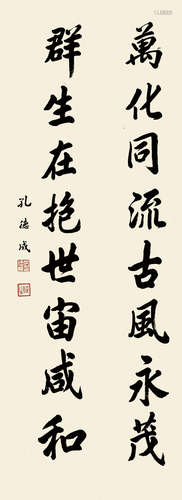 萬化同流古風永茂
群生在抱世宙咸和
孔德成